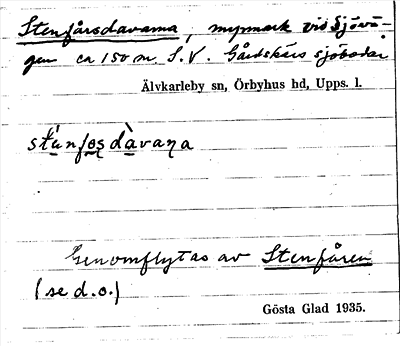 Stenfårsdavarna, myrmark vid Sjövä-
gen ca 150 m S.V. Gårdskärs sjöbodar
Älvkarleby sn, Örbyhus hd, Upps. l.
Genomflytas av Stenfåren
(se d.o.)
Gösta Glad 1935.